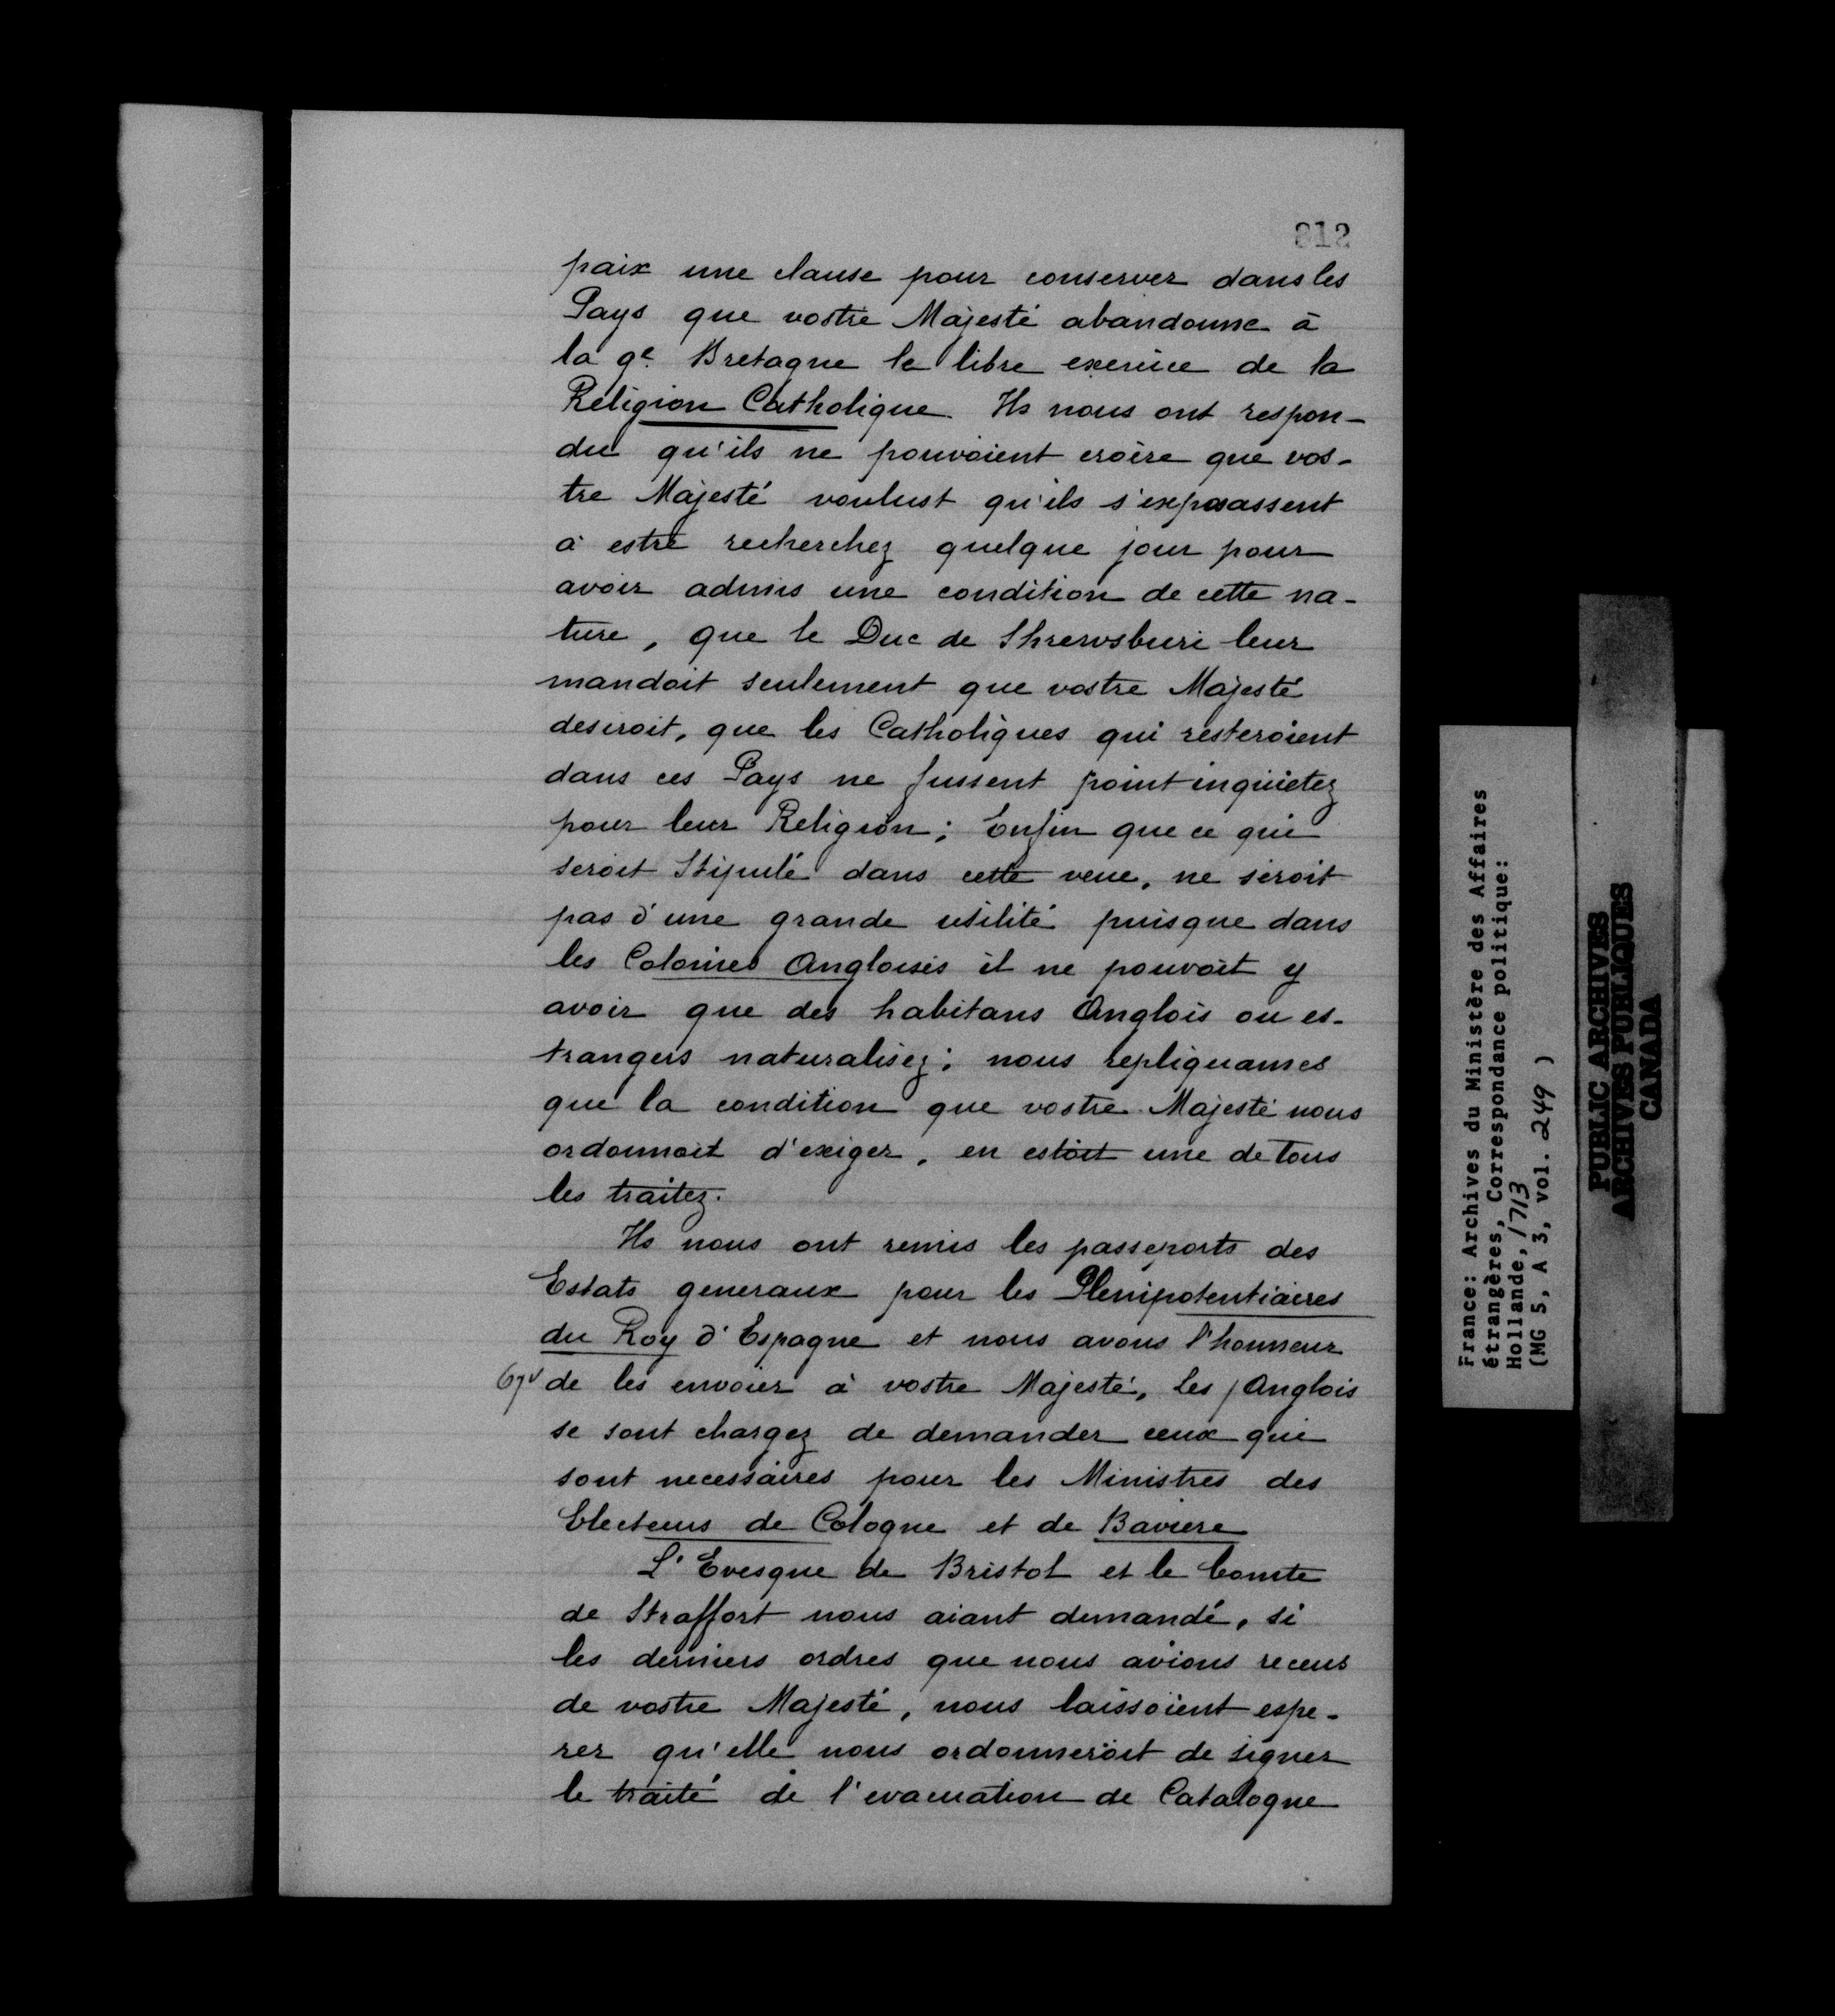 812
paix une clause pour conserver dans les
Pays que vostre Majesté abandonne à
la ge. Bretagne le libre exercice de la
Religion Catholique. Ils nous ont respon-
du qu'ils ne pouvoient croire que vos-
tre Majesté voulust qu'ils s'exposassent
à estre recherchez quelque jour pour
avoir admis une condition de cette na-
ture, que le Duc de Shrewsburi leur
mandoit seulement que vostre Majesté
desiroit, que les Catholiques qui resteroient
dans ces Pays ne fussent point inquietez
pour leur Religion; Enfin que ce qui
seroit Stipulé dans cette veue, ne seroit
pas d'une grande utilité puisque dans
les Colonies Angloises il ne pouvoit y
avoir que des habitans Anglois ou es-
trangers naturalisez; nous repliquames
que la condition que vostre Majesté nous
ordonnoit d'exiger, en estoit une de tous
les traitez.
Ils nous ont remis les passeports des
Estats generaux pour les Plenipotentiaires
du Roy d'Espagne et nous avons l'honneur
67v de les envoier à vostre Majesté, les / Anglois
se sont chargez de demander ceux qui
sont necessaires pour les Ministres des
Electeurs de Cologne et de Baviere
L'Evesque de Bristol et le Comte
de Straffort nous aiant demandé, si
les derniers ordres que nous avions receus
de vostre Majesté, nous laissoient espe-
rer qu'elle nous ordonneroit de signer
le traité de l'evacuation de Catalogne
France: Archives du Ministère des Affaires
étrangères, Correspondance politique:
Hollande, 1713
(MG 5, A 3, vol. 249 )
PUBLIC ARCHIVES
ARCHIVES PUBLIQUES
CANADA